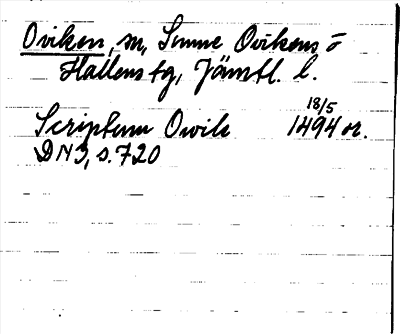 Oviken, sn, Sunne Ovikens o
Hallens tg, Jämtl. l.
Scriptum Owik 18/5 1494 or.
DN 3, s. 720